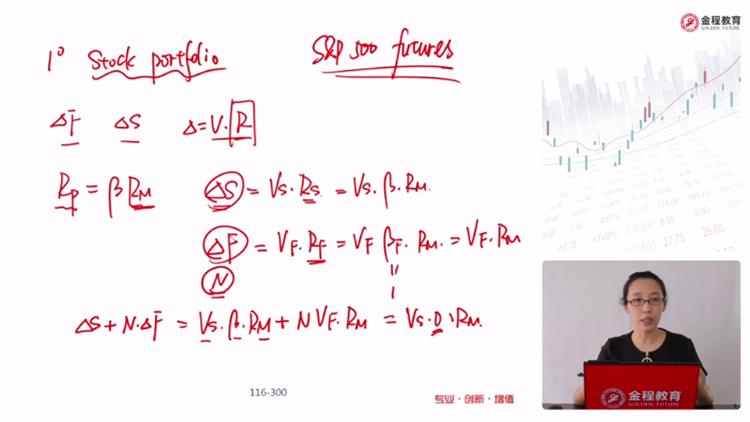 金程教育
GOLDEN FUTURE
1° Stock portfolio S&P 500 futures
ΔF ΔS Δ=V·R
Rp = βRM ΔS = Vs·Rs = Vs·β·RM.
ΔF = VF·RF = VF βF·RM = VF·RM
N
"
1
ΔS + N·ΔF = Vs·β·RM + N VF·RM = Vs·0·RM.
116-300
专业·创新·增值
金程教育
GOLDEN FUTURE